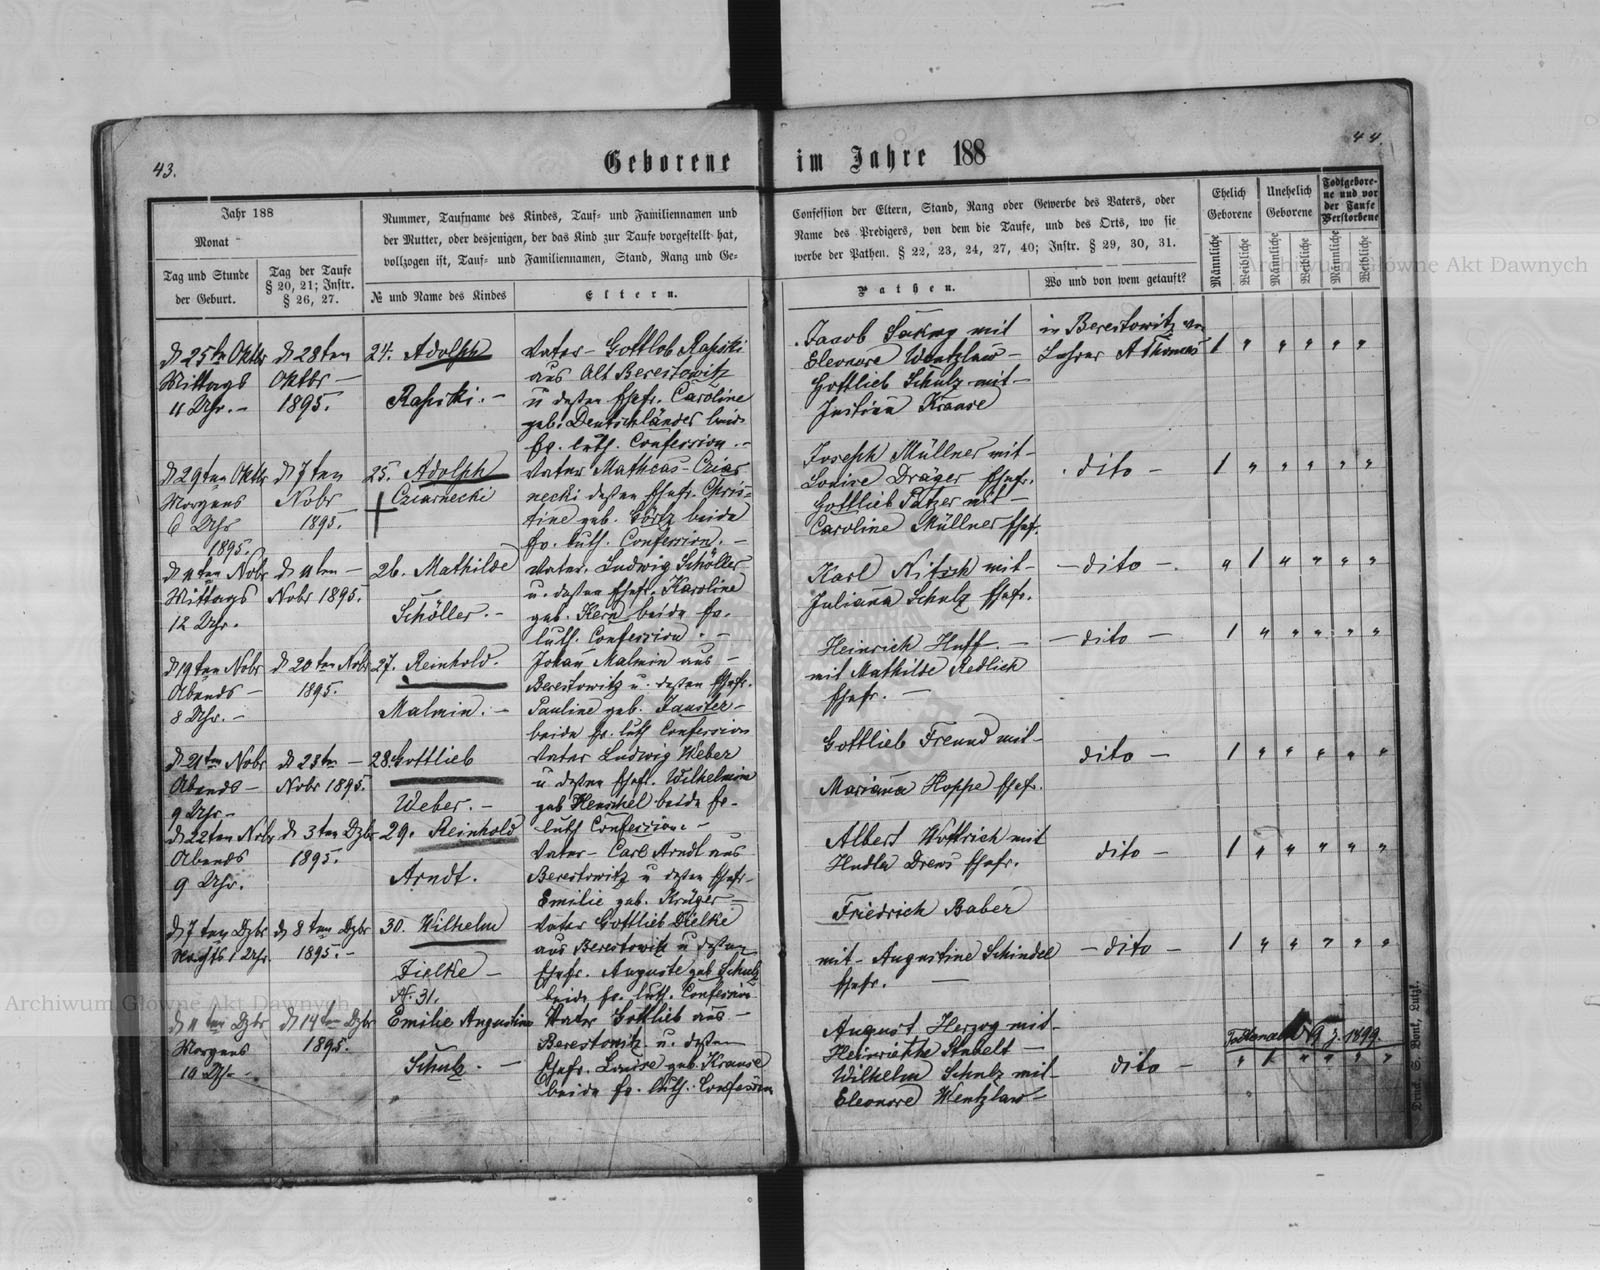 43.
Geborene im Jahre 188
44.
Jahr 188
Monat
Tag und Stunde
der Geburt.
Tag der Taufe
§ 20, 21; Instr.
§ 26, 27.
Nummer, Taufname des Kindes, Tauf- und Familiennamen und
der Mutter, oder desjenigen, der das Kind zur Taufe vorgestellt hat,
vollzogen ist, Tauf- und Familiennamen, Stand, Rang und Ge-
№ und Name des Kindes
Eltern.
Confession der Eltern, Stand, Rang oder Gewerbe des Vaters, oder
Name des Predigers, von dem die Taufe, und des Orts, wo sie
werbe der Pathen. § 22, 23, 24, 27, 40; Instr. § 29, 30, 31.
Pathen.
Wo und von wem getauft?
Ehelich
Geborene
Unehelich
Geborene
Todtgebore-
ne und vor
der Taufe
Verstorbene
Männliche
Weibliche
Männliche
Weibliche
Männliche
Weibliche
d 25ten Oktbr
Mittags
4 Uhr. –
d 28ten
Oktbr –
1895.
24. Adolph
Rapski. –
Vater – Gottlob Rapski
aus Alt Berestowitz
u deßen Ehefr. Caroline
geb. Deutschländer beide
ev. luth. Confession. –
Jacob mit
Eleonore Wentzlaw –
Gottlieb Schulz mit –
Justina Krause
in Berestowitz von
Lehrer A Thomas
1 " " " " "
d 29ten Oktbr
Morgens
6 Uhr
1895.
d 7ten
Nobr
1895.
25. Adolph
Cziarnecki
Vater Matheas Cziar
necki deßen Ehefr. Chris-
tine geb. Görtz beide
ev. luth. Confession. –
Joseph Müllner mit –
Louise Dräger Ehefr.
Gottlieb Patzer mit –
Caroline Müllner Ehefr.
dito –
1 " " " " "
d 4ten Nobr
Mittags
12 Uhr.
d 4ten –
Nobr 1895.
26. Mathilde
Schöller. –
Vater. Ludwig Schöller
u. deßen Ehefr. Karoline
geb. Kern beide ev.
luth. Confession. –
Karl Nitsch mit –
Juliana Schulz Ehefr.
– dito –.
" 1 " " " "
d 19ten Nobr
Abends –
8 Uhr. –
d 20ten Nobr
1895.
27. Reinhold.
Malmin. –
Johan Malmin aus –
Berestowitz u. deßen Ehefr.
Pauline geb. Fauster –
beide ev. luth Confession
Heinrich Huff. –
mit Mathilde Redlich
Ehefr. –
– dito –
1 " " " " "
d 21ten Nobr
Abends –
9 Uhr –
d 23ten –
Nobr 1895.
28. Gottlieb
Weber. –
Vater Ludwig Weber
u. deßen Ehefr. Wilhelmine
geb Henschel beide ev.
luth Confession. –
Gottlieb Freund mit –
Mariana Hoppe Ehefr.
dito –
1 " " " " "
d 22ten Nobr
Abends
9 Uhr.
d 3ten Dzbr
1895.
29. Reinhold
Arndt.
Vater – Carl Arndt aus
Berestowitz u deßen Ehefr.
Emilie geb. Krüger –
Albert Wottrich mit
Hulda Drews Ehefr.
dito –
1 " " " " "
d 7ten Dzbr
Nachts 1 Uhr.
d 8ten Dzbr
1895. –
30. Wilhelm
Zielke –
Vater Gottlieb Zielke
aus Berestowitz u deßen
Ehefr. Auguste geb Schulz
beide ev. luth. Confession
Friedrich Baber
mit – Augustine Schindel
Ehefr. –
– dito –
1 " " " " "
d 11ten Dzbr
Morgens
10 Uhr –
d 14ten Dzbr
1895.
N. 31.
Emilie Augustine
Schulz. –
Vater Gottlieb aus –
Berestowitz u. deßen
Ehefr. Louise geb. Krause
beide ev. luth. Confession
August Herzog mit –
Heinriethe Stabelt –
Wilhelm Schulz mit –
Eleonore Wentzlaw –
dito –
1899.
" 1 " " " "
Druck S. Bonk, Lutzk.
Archiwum Główne Akt Dawnych
Archiwum Główne Akt Dawnych